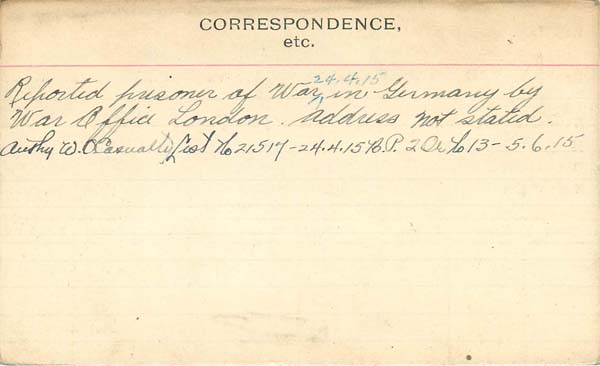 CORRESPONDENCE,
etc.
24.4.15
Reported prisoner of War, in Germany by
War Office London. address not stated.
Authy W.O. Casualty List No 21517-24.4.15 P. 2 No 13-5.6.15